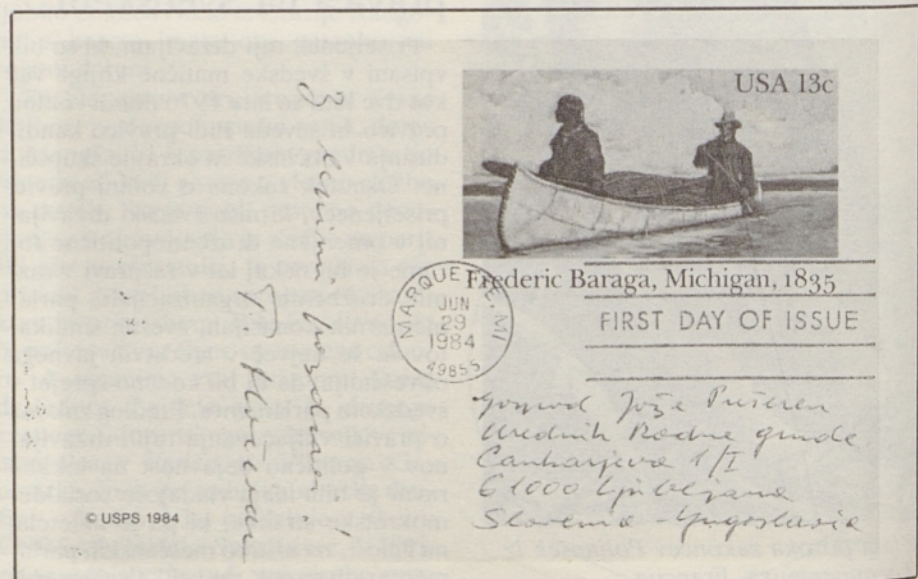 USA 13c
Frederic Baraga, Michigan, 1835
MARQUETTE, MI
JUN
29
1984
49855
FIRST DAY OF ISSUE
Gospod Jože Prešeren
Urednik Rodne grude
Cankarjeva 1/I
61000 Ljubljana
Slovenia - Yugoslavia
© USPS 1984